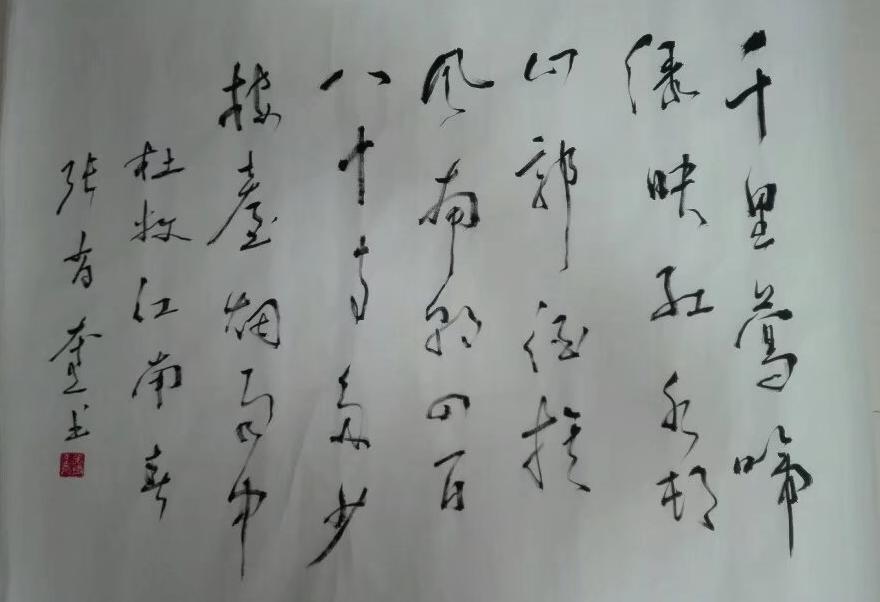 千里莺啼
绿映红水村
山郭酒旗
风南朝四百
八十寺多少
楼臺烟雨中
杜牧江南春
张有奎书